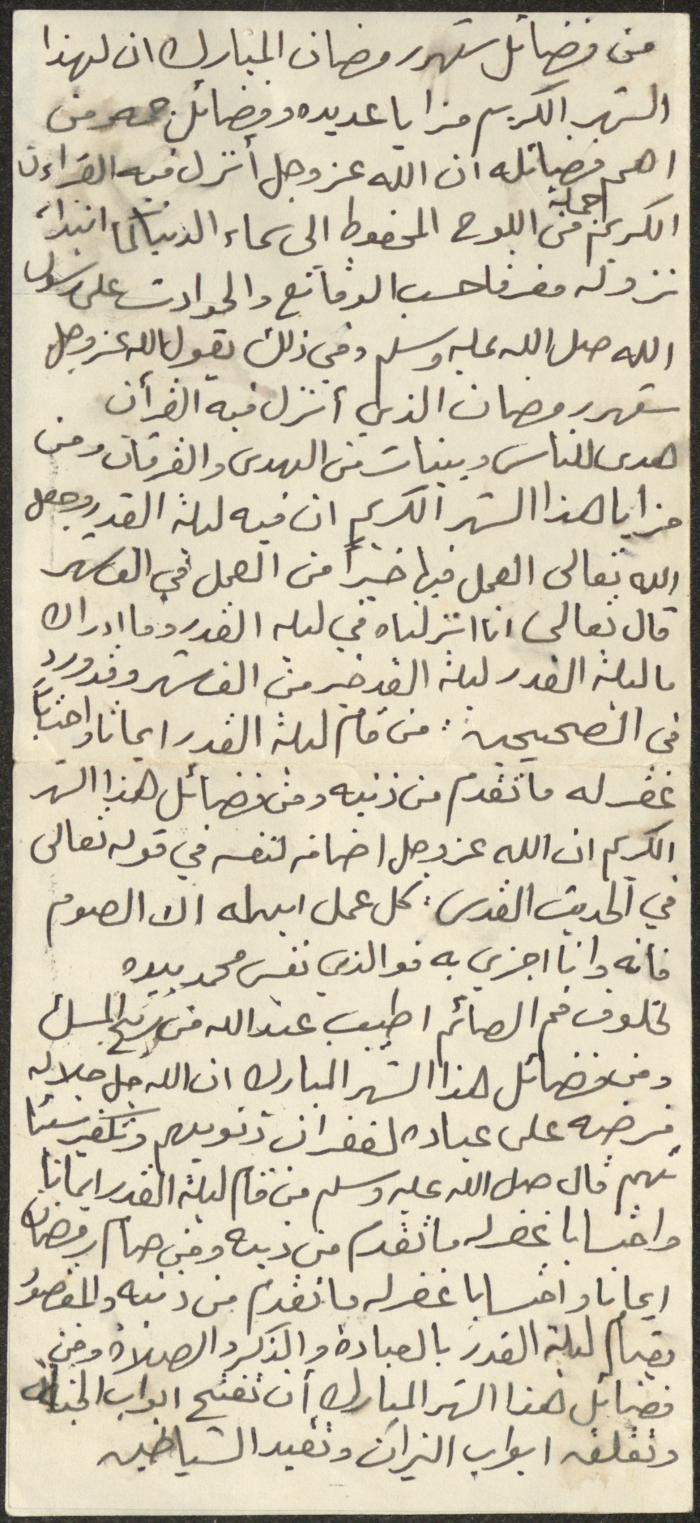 من فضائل شهر رمضان المبارك ان لهذا
الشهر الكريم مزايا عديده وفضائل جمه ومن
اهم فضائله ان الله عز وجل أنزل فيه القراءن
الكريم جملة من اللوح المحفوظ الى سماء الدنيا ابتداء
نزوله مفرقا حسب الوقائع والحوادث على رسول
الله صلى الله عليه وسلم وفي ذلك يقول الله عز وجل
شهر رمضان الذي أنزل فيه القرأن
هدى للناس وبينات من الهدى والفرقان ومن
مزايا هذا الشهر الكريم ان فيه ليلة القدر وجعل
الله تعالى العمل فيها خيراً من العمل في الف شهر
قال تعالى انا انزلناه في ليلة القدر وما ادراك
ما ليلة القدر ليلة القدر خير من الف شهر وقد ورد
في الصحيحين : من قام ليلة القدر ايمانا واحتسابا
غفر له ما تقدم من ذنبه ومن فضائل هذا الشهر
الكريم ان الله عز وجل اضافه لنفسه في قوله تعالى
في الحديث القدسي : كل عمل ابن ادم له الا الصوم
فانه وانا اجزي به فوالذي نفس محمد بيده
لخلوف فم الصائم اطيب عند الله من ريح المسك
ومن فضائل هذا الشهر المبارك ان الله جل جلاله
فرضه على عباده لغفران ذنوبهم وتكفير سيئا
تهم قال صلى الله عليه وسلم من قام ليلة القدر ايمانا
واحتسابا غفر له ما تقدم من ذنبه ومن صام رمضان
ايمانا واحتسابا غفر له ما تقدم من ذنبه والمقصود
بقيام ليلة القدر بالعبادة والذكر والصلاة ومن
فضائل هذا الشهر المبارك أن تفتح ابواب الجنة
وتغلق ابواب النيران وتقيد الشياطين